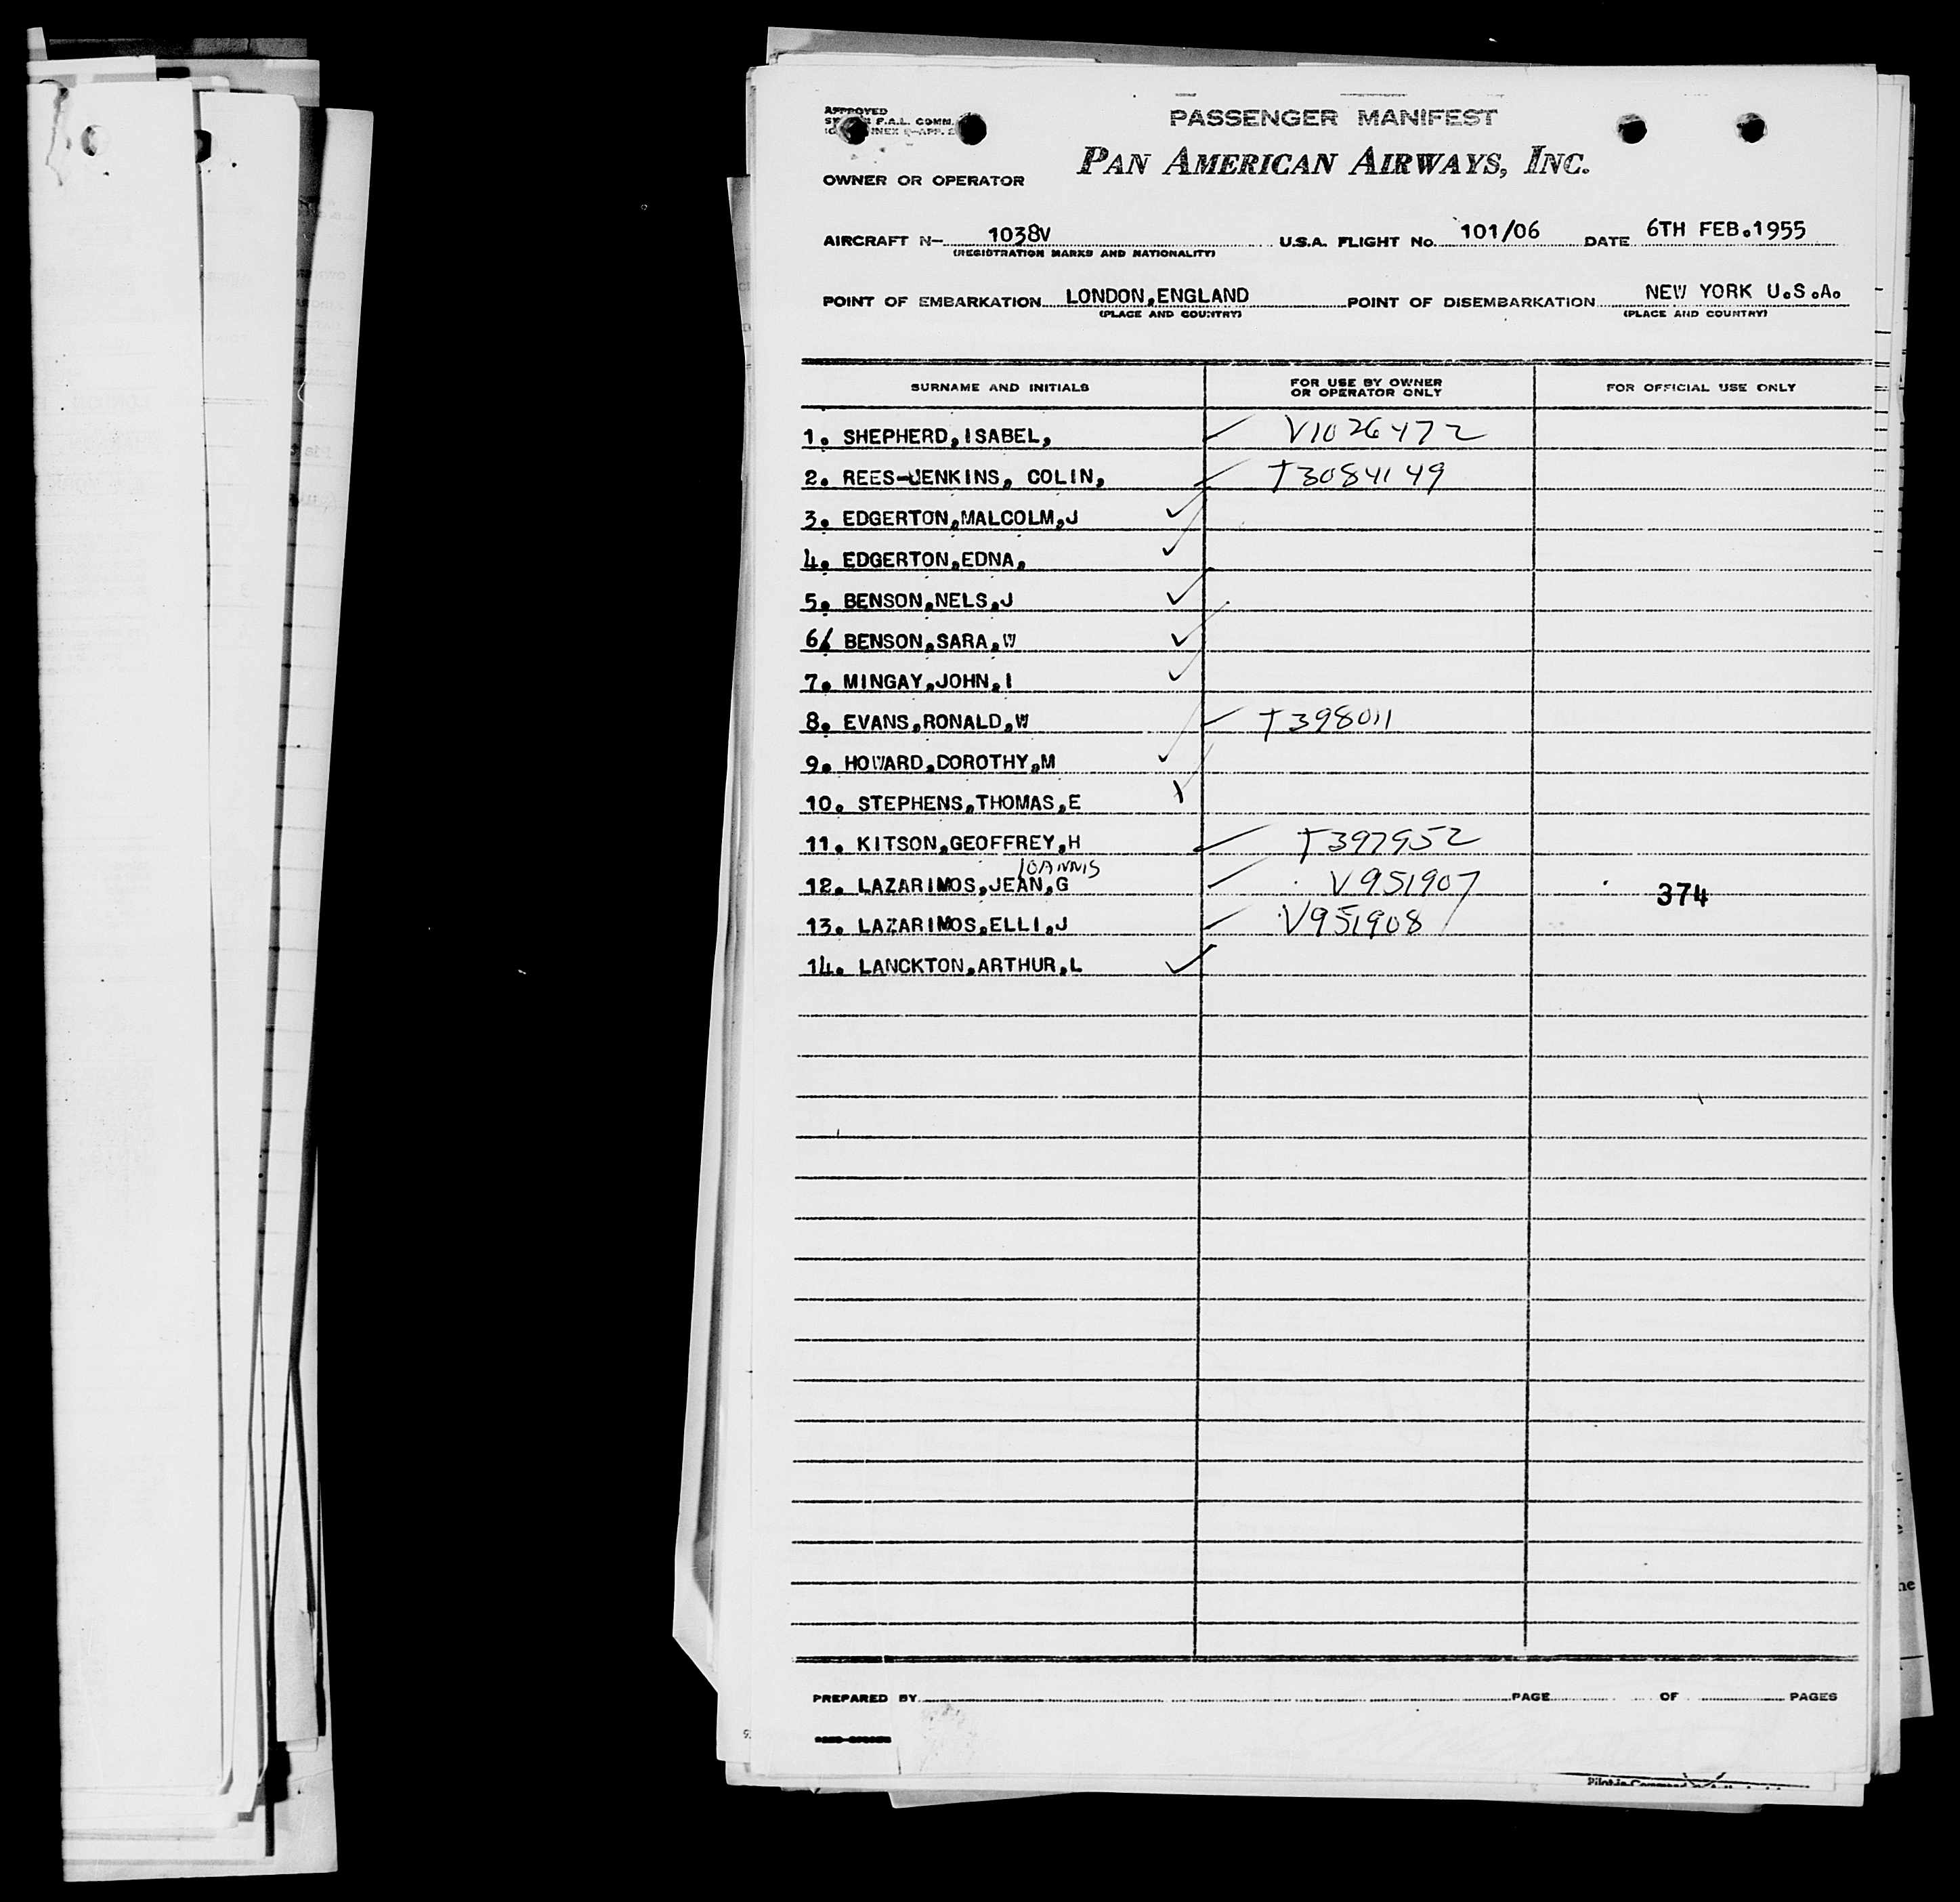 APPROVED
F.A.L. COMM.
PASSENGER MANIFEST
PAN AMERICAN AIRWAYS, INC.
OWNER OR OPERATOR
AIRCRAFT N- 1038V U.S.A. FLIGHT No. 101/06 DATE 6TH FEB.1955
(REGISTRATION MARKS AND NATIONALITY)
POINT OF EMBARKATION LONDON,ENGLAND POINT OF DISEMBARKATION NEW YORK U.S.A.
(PLACE AND COUNTRY) (PLACE AND COUNTRY)
SURNAME AND INITIALS FOR USE BY OWNER OR OPERATOR ONLY FOR OFFICIAL USE ONLY
1. SHEPHERD,ISABEL, V1026472
2. REES-JENKINS, COLIN, T3084149
3. EDGERTON,MALCOLM,J
4. EDGERTON,EDNA,
5. BENSON,NELS,J
6/ BENSON,SARA,W
7. MINGAY,JOHN,I
8. EVANS,RONALD,W T398011
9. HOWARD,DOROTHY,M
10. STEPHENS,THOMAS,E
11. KITSON,GEOFFREY,H T397952
IOANNIS
12. LAZARIMOS,JEAN,G V951907 374
13. LAZARIMOS,ELLI,J V951908
14. LANCKTON,ARTHUR,L
PREPARED BY PAGE OF PAGES